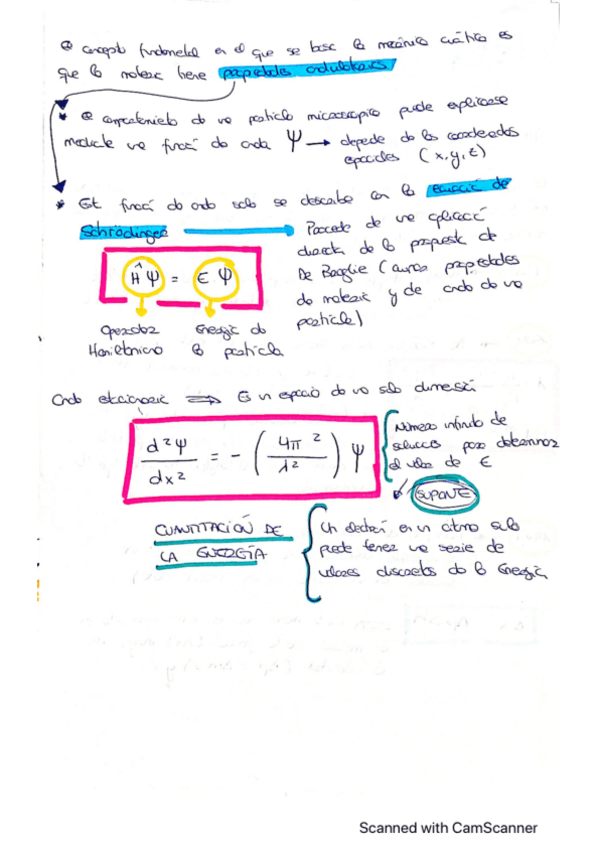 El concepto fundamental en el que se basa la mecánica cuántica es
que la materia tiene propiedades ondulatorias
* El comportamiento de una partícula microscópica puede explicarse
mediante una función de onda Ψ → depende de las coordenadas
espaciales (x, y, z)
* Esta función de onda solo se describe con la Ecuación de
Schrödinger
Procede de una aplicación
directa de la propuesta de
De Broglie (aunar propiedades
de materia y de onda de una
partícula)
ĤΨ = E Ψ
Operador
Hamiltoniano
Energía de
la partícula
Onda estacionaria ⟹ Es un espacio de una sola dimensión
d²Ψ / dx² = - (4π² / λ²) Ψ
Número infinito de
soluciones para determinar
el valor de E
SUPONE
CUANTIZACIÓN DE
LA ENERGÍA
Un electrón en un átomo solo
puede tener una serie de
valores discretos de la Energía
Scanned with CamScanner